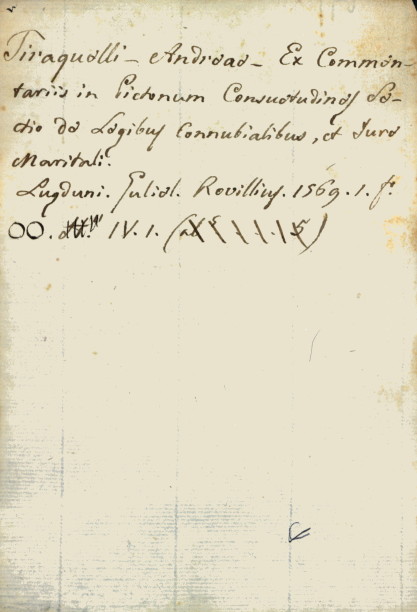 Tiraquelli - Andreae - Ex Commen-
tariis in Pictonum Consuetudines Se-
ctio de Legibus Connubialibus, et Jure
Maritali.
Lugduni. Guliel. Rovillius. 1569. 1. f.
OO. IV. 1.